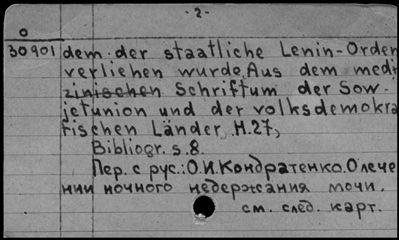 -2-
O
30901 dem der staatliche Lenin-Orden
verliehen wurde, Aus dem medi
zinischen Schriftum der Sow-
jetunion und der volksdemokra
tischen Länder, H.27,
Bibliogr. s.8.
Пер. с рус.: О.И.Кондратенко. О лече
нии ночного недержания мочи.
см. след. карт.